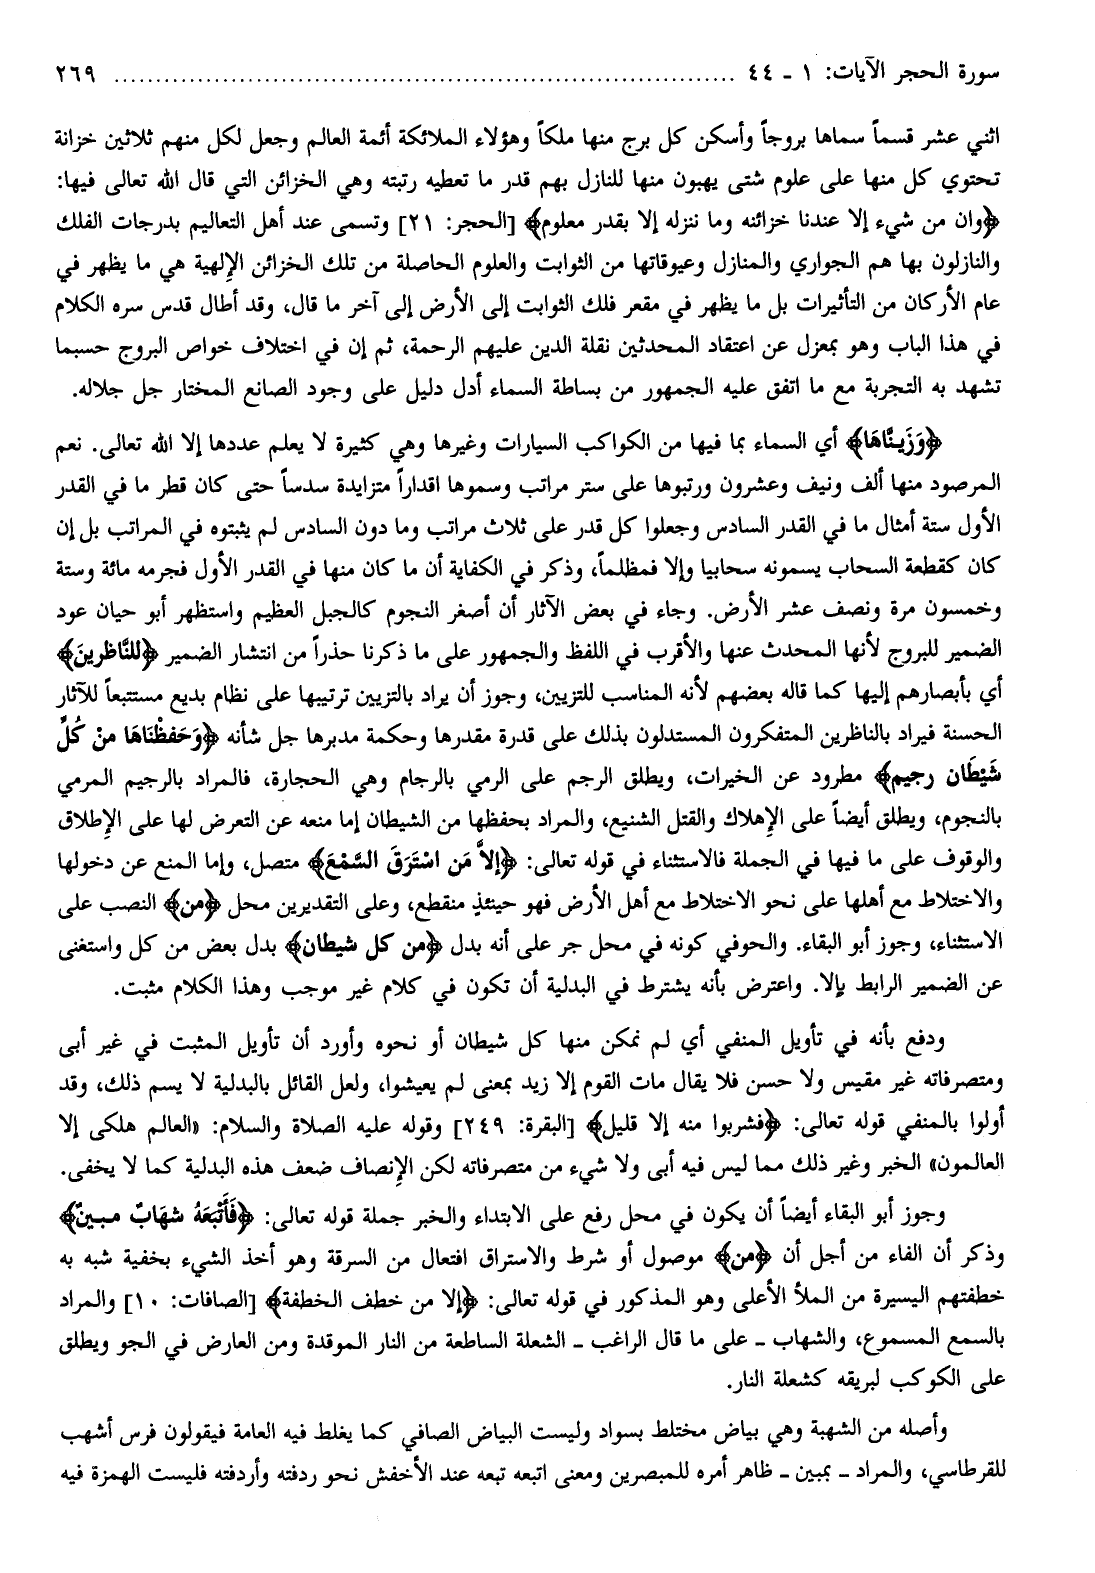 سورة الحجر الآيات: ١ - ٤٤ ........................................................................................ ٢٦٩
اثني عشر قسماً سماها بروجاً وأسكن كل برج منها ملكاً وهؤلاء الملائكة أئمة العالم وجعل لكل منهم ثلاثين خزانة
تحتوي كل منها على علوم شتى يهبون منها للنازل بهم قدر ما تعطيه رتبته وهي الخزائن التي قال الله تعالى فيها:
﴿وان من شيء إلا عندنا خزائنه وما ننزله إلا بقدر معلوم﴾ [الحجر: ٢١] وتسمى عند أهل التعاليم بدرجات الفلك
والنازلون بها هم الجواري والمنازل وعيوقاتها من الثوابت والعلوم الحاصلة من تلك الخزائن الإلهية هي ما يظهر في
عام الأركان من التأثيرات بل ما يظهر في مقعر فلك الثوابت إلى الأرض إلى آخر ما قال، وقد أطال قدس سره الكلام
في هذا الباب وهو بمعزل عن اعتقاد المحدثين نقلة الدين عليهم الرحمة، ثم إن في اختلاف خواص البروج حسبما
تشهد به التجربة مع ما اتفق عليه الجمهور من بساطة السماء أدل دليل على وجود الصانع المختار جل جلاله.
﴿وَزَيـنَّاهَا﴾ أي السماء بما فيها من الكواكب السيارات وغيرها وهي كثيرة لا يعلم عددها إلا الله تعالى. نعم
المرصود منها ألف ونيف وعشرون ورتبوها على ستر مراتب وسموها اقداراً متزايدة سدساً حتى كان قطر ما في القدر
الأول ستة أمثال ما في القدر السادس وجعلوا كل قدر على ثلاث مراتب وما دون السادس لم يثبتوه في المراتب بل إن
كان كقطعة السحاب يسمونه سحابيا وإلا فمظلماً، وذكر في الكفاية أن ما كان منها في القدر الأول فجرمه مائة وستة
وخمسون مرة ونصف عشر الأرض. وجاء في بعض الآثار أن أصغر النجوم كالجبل العظيم واستظهر أبو حيان عود
الضمير للبروج لأنها المحدث عنها والأقرب في اللفظ والجمهور على ما ذكرنا حذراً من انتشار الضمير ﴿للنَّاظرينَ﴾
أي بأبصارهم إليها كما قاله بعضهم لأنه المناسب للتزيين، وجوز أن يراد بالتزيين ترتيبها على نظام بديع مستتبعاً للآثار
الحسنة فيراد بالناظرين المتفكرون المستدلون بذلك على قدرة مقدرها وحكمة مدبرها جل شأنه ﴿وَحَفظْنَاهَا منْ كُلِّ
شَيْطَان رجيم﴾ مطرود عن الخيرات، ويطلق الرجم على الرمي بالرجام وهي الحجارة، فالمراد بالرجيم المرمي
بالنجوم، ويطلق أيضاً على الإهلاك والقتل الشنيع، والمراد بحفظها من الشيطان إما منعه عن التعرض لها على الإطلاق
والوقوف على ما فيها في الجملة فالاستثناء في قوله تعالى: ﴿إلاَّ مَن اسْتَرَقَ السَّمْعَ﴾ متصل، وإما المنع عن دخولها
والاختلاط مع أهلها على نحو الاختلاط مع أهل الأرض فهو حينئذٍ منقطع، وعلى التقديرين محل ﴿من﴾ النصب على
الاستثناء، وجوز أبو البقاء. والحوفي كونه في محل جر على أنه بدل ﴿من كل شيطان﴾ بدل بعض من كل واستغنى
عن الضمير الرابط بإلا. واعترض بأنه يشترط في البدلية أن تكون في كلام غير موجب وهذا الكلام مثبت.
ودفع بأنه في تأويل المنفي أي لم نمكن منها كل شيطان أو نحوه وأورد أن تأويل المثبت في غير أبى
ومتصرفاته غير مقيس ولا حسن فلا يقال مات القوم إلا زيد بمعنى لم يعيشوا، ولعل القائل بالبدلية لا يسم ذلك، وقد
أولوا بالمنفي قوله تعالى: ﴿فشربوا منه إلا قليل﴾ [البقرة: ٢٤٩] وقوله عليه الصلاة والسلام: «العالم هلكى إلا
العالمون» الخبر وغير ذلك مما ليس فيه أبى ولا شيء من متصرفاته لكن الإنصاف ضعف هذه البدلية كما لا يخفى.
وجوز أبو البقاء أيضاً أن يكون في محل رفع على الابتداء والخبر جملة قوله تعالى: ﴿فَأَتْبَعَهُ شهَابٌ مـبـينٌ﴾
وذكر أن الفاء من أجل أن ﴿من﴾ موصول أو شرط والاستراق افتعال من السرقة وهو أخذ الشيء بخفية شبه به
خطفتهم اليسيرة من الملأ الأعلى وهو المذكور في قوله تعالى: ﴿إلا من خطف الخطفة﴾ [الصافات: ١٠] والمراد
بالسمع المسموع، والشهاب ـ على ما قال الراغب ـ الشعلة الساطعة من النار الموقدة ومن العارض في الجو ويطلق
على الكوكب لبريقه كشعلة النار.
وأصله من الشهبة وهي بياض مختلط بسواد وليست البياض الصافي كما يغلط فيه العامة فيقولون فرس أشهب
للقرطاسي، والمراد ـ بمبين ـ ظاهر أمره للمبصرين ومعنى اتبعه تبعه عند الأخفش نحو ردفته وأردفته فليست الهمزة فيه